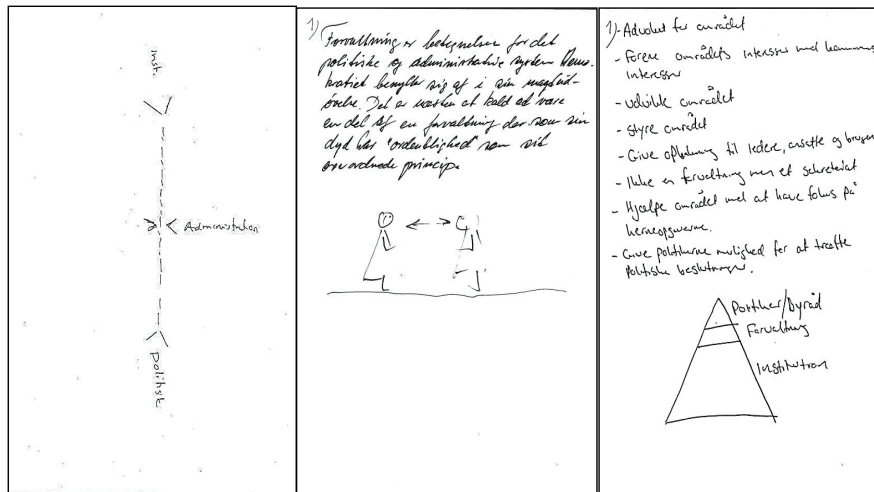 Inst.
Administration
politisk
1)
Forvaltning er betegnelsen for det
politiske og administrative system Demo-
kratiet benytter sig af i sin magtud-
øvelse. Det er næsten et kald at være
en del af en forvaltning der som sin
dyd har "ordentlighed" som sit
overordnede princip.
1) - Advokat for området
- Forene områdets interesser med kommunens
interesser
- Udvikle området
- Styre området
- Give opbakning til ledere, ansatte og brugere
- Ikke en forvaltning men et sekretariat
- Hjælpe området med at have fokus på
kerneopgaverne.
- Give politikerne mulighed for at træffe
politiske beslutninger.
Politiker/Byråd
Forvaltning
Institution